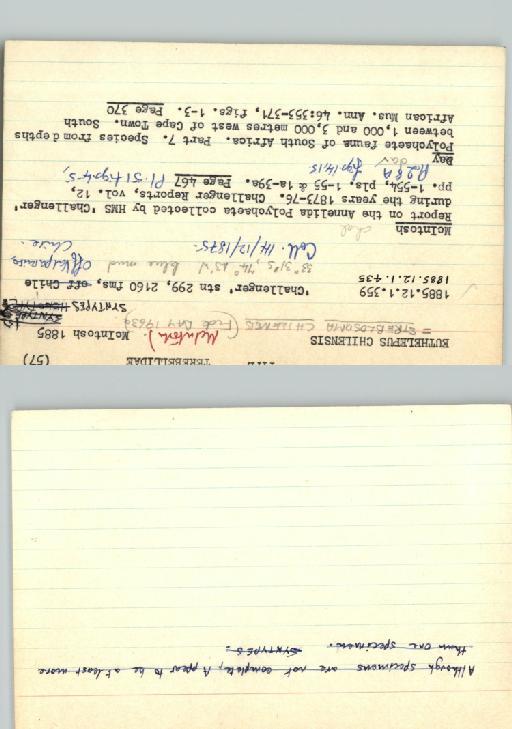 TEREBELLIDAE (57)
EUTHELEPUS CHILENSIS McIntosh 1885
McIntosh)
= STREBLOSOMA CHILENSIS (Fide DAY 1963)
SYNTYPES
1885.12.1.359 'Challenger' stn 299, 2160 fms, off Chile
1885.12.1.435
33° 31'S, 74° 43'W blue mud Off Valparaiso, Chile.
Coll. 14/12/1875.
McIntosh
Report on the Annelida Polychaeta collected by HMS 'Challenger'
during the years 1873-76. Challenger Reports, vol. 12,
pp. 1-554, pls. 1-55 & 1a-39a. Page 467 Pl. 51 figs 4-5,
Pl. 28A figs 14,15
Day
Polychaete fauna of South Africa. Part 7. Species from depths
between 1,000 and 3,000 metres west of Cape Town. South
African Mus. Ann. 46:353-371, figs. 1-3. Page 370
Although specimens are not complete, Appear to be at least more
than one specimen. SYNTYPES